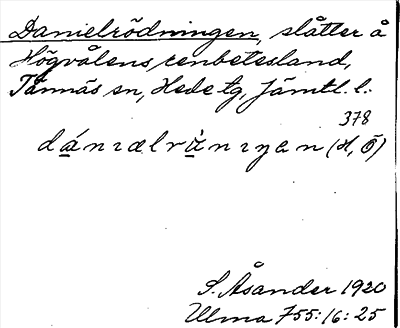 Danielrödningen, slåtter å
Högvålens renbetesland,
Tännäs sn, Hede tg, Jämtl. l.
378
dánıælrı̀nıŋen (H, Ö)
S. Åsander 1920
Ulma 755:16:25